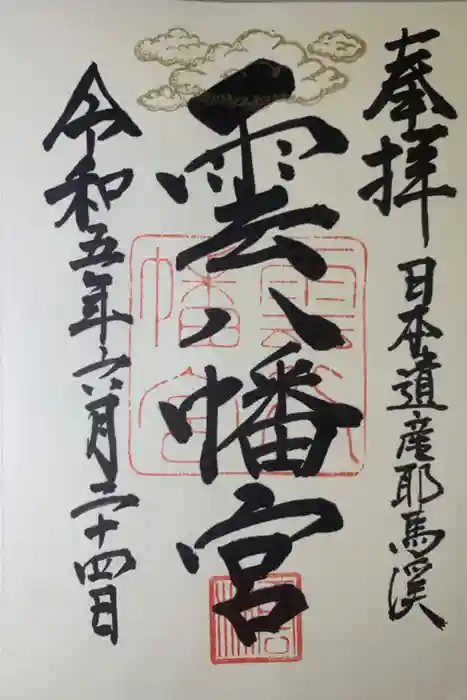 奉拝 日本遺産耶馬渓
雲八幡宮
令和五年六月二十四日
雲八幡宮